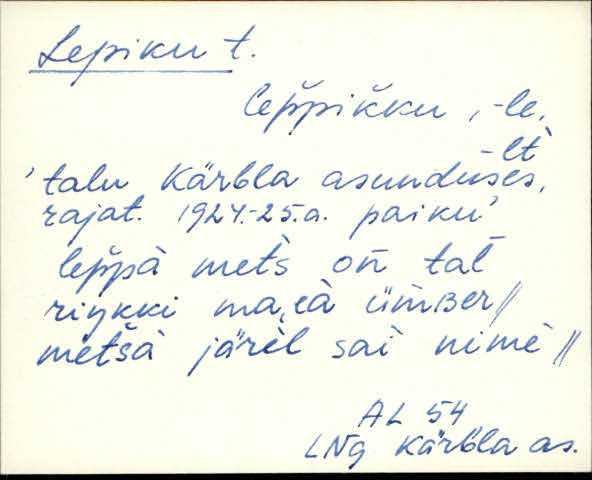 Lepiku t.
lep̌pik̆ku, -le,
-lt̀
'talu Kärbla asunduses,
rajat. 1924.-25.a. paiku'
lep̆pà met̀s on̄ tal̄
riŋkki ma,ià üm̆ʙer//
met̆sà järèl sai nimè //
AL 54
LNg Kärbla as.